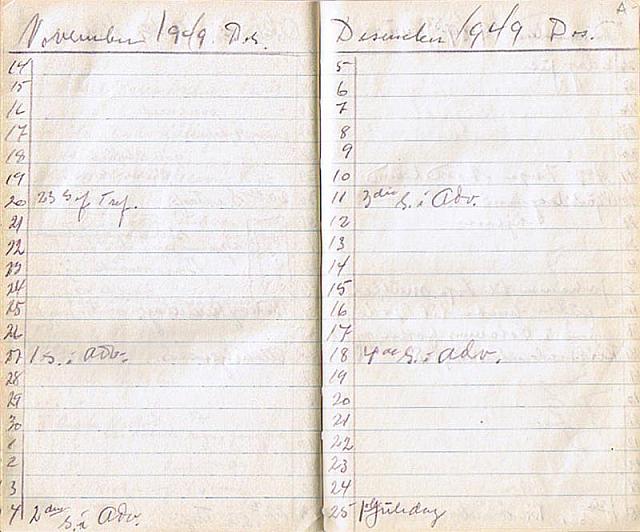 November 1949. Dos.
14
15
16
17
18
19
20 23 Sef Tref.
21
22
23
24
25
26
27 1 s. i Adv.
28
29
30
1
2
3
4 2den S. i Adv.
Desember 1949 Dos.
A
5
6
7
8
9
10
11 3die S. i Adv.
12
13
14
15
16
17
18 4de S. i Adv.
19
20
21
22
23
24
25 1ste Juledag